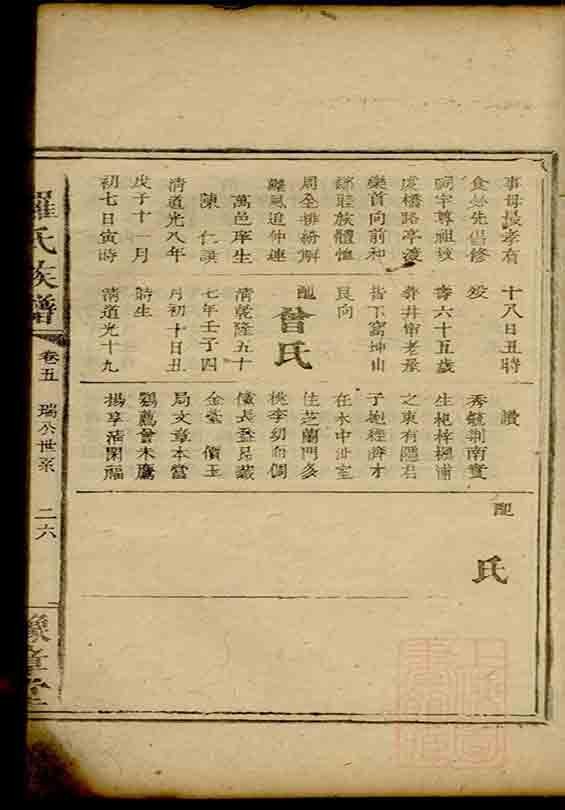 事母最孝有
食必先倡修
祠宇尊祖敬
虔橋路亭渡
樂首向前和
鄰睦族體恤
周全排紛解
難風追仲連
萬邑庠生
陳仁譔
清道光八年
戊子十一月
初七日寅時
十八日丑時
歿
壽六十五歲
葬井甽老屋
背下窩坤山
艮向
配
曾氏
清乾隆五十
七年壬子四
月初十日丑
時生
清道光十九
讚
秀毓荊南實
生杞梓楓浦
之東有隱君
子抱經濟才
在水中沚室
佳芝蘭門多
桃李
金臺
局文章本富
鶚薦會木鷹
揚享清閑福
配
氏
羅氏族譜
卷五
瑞公世系
二六
豫章堂